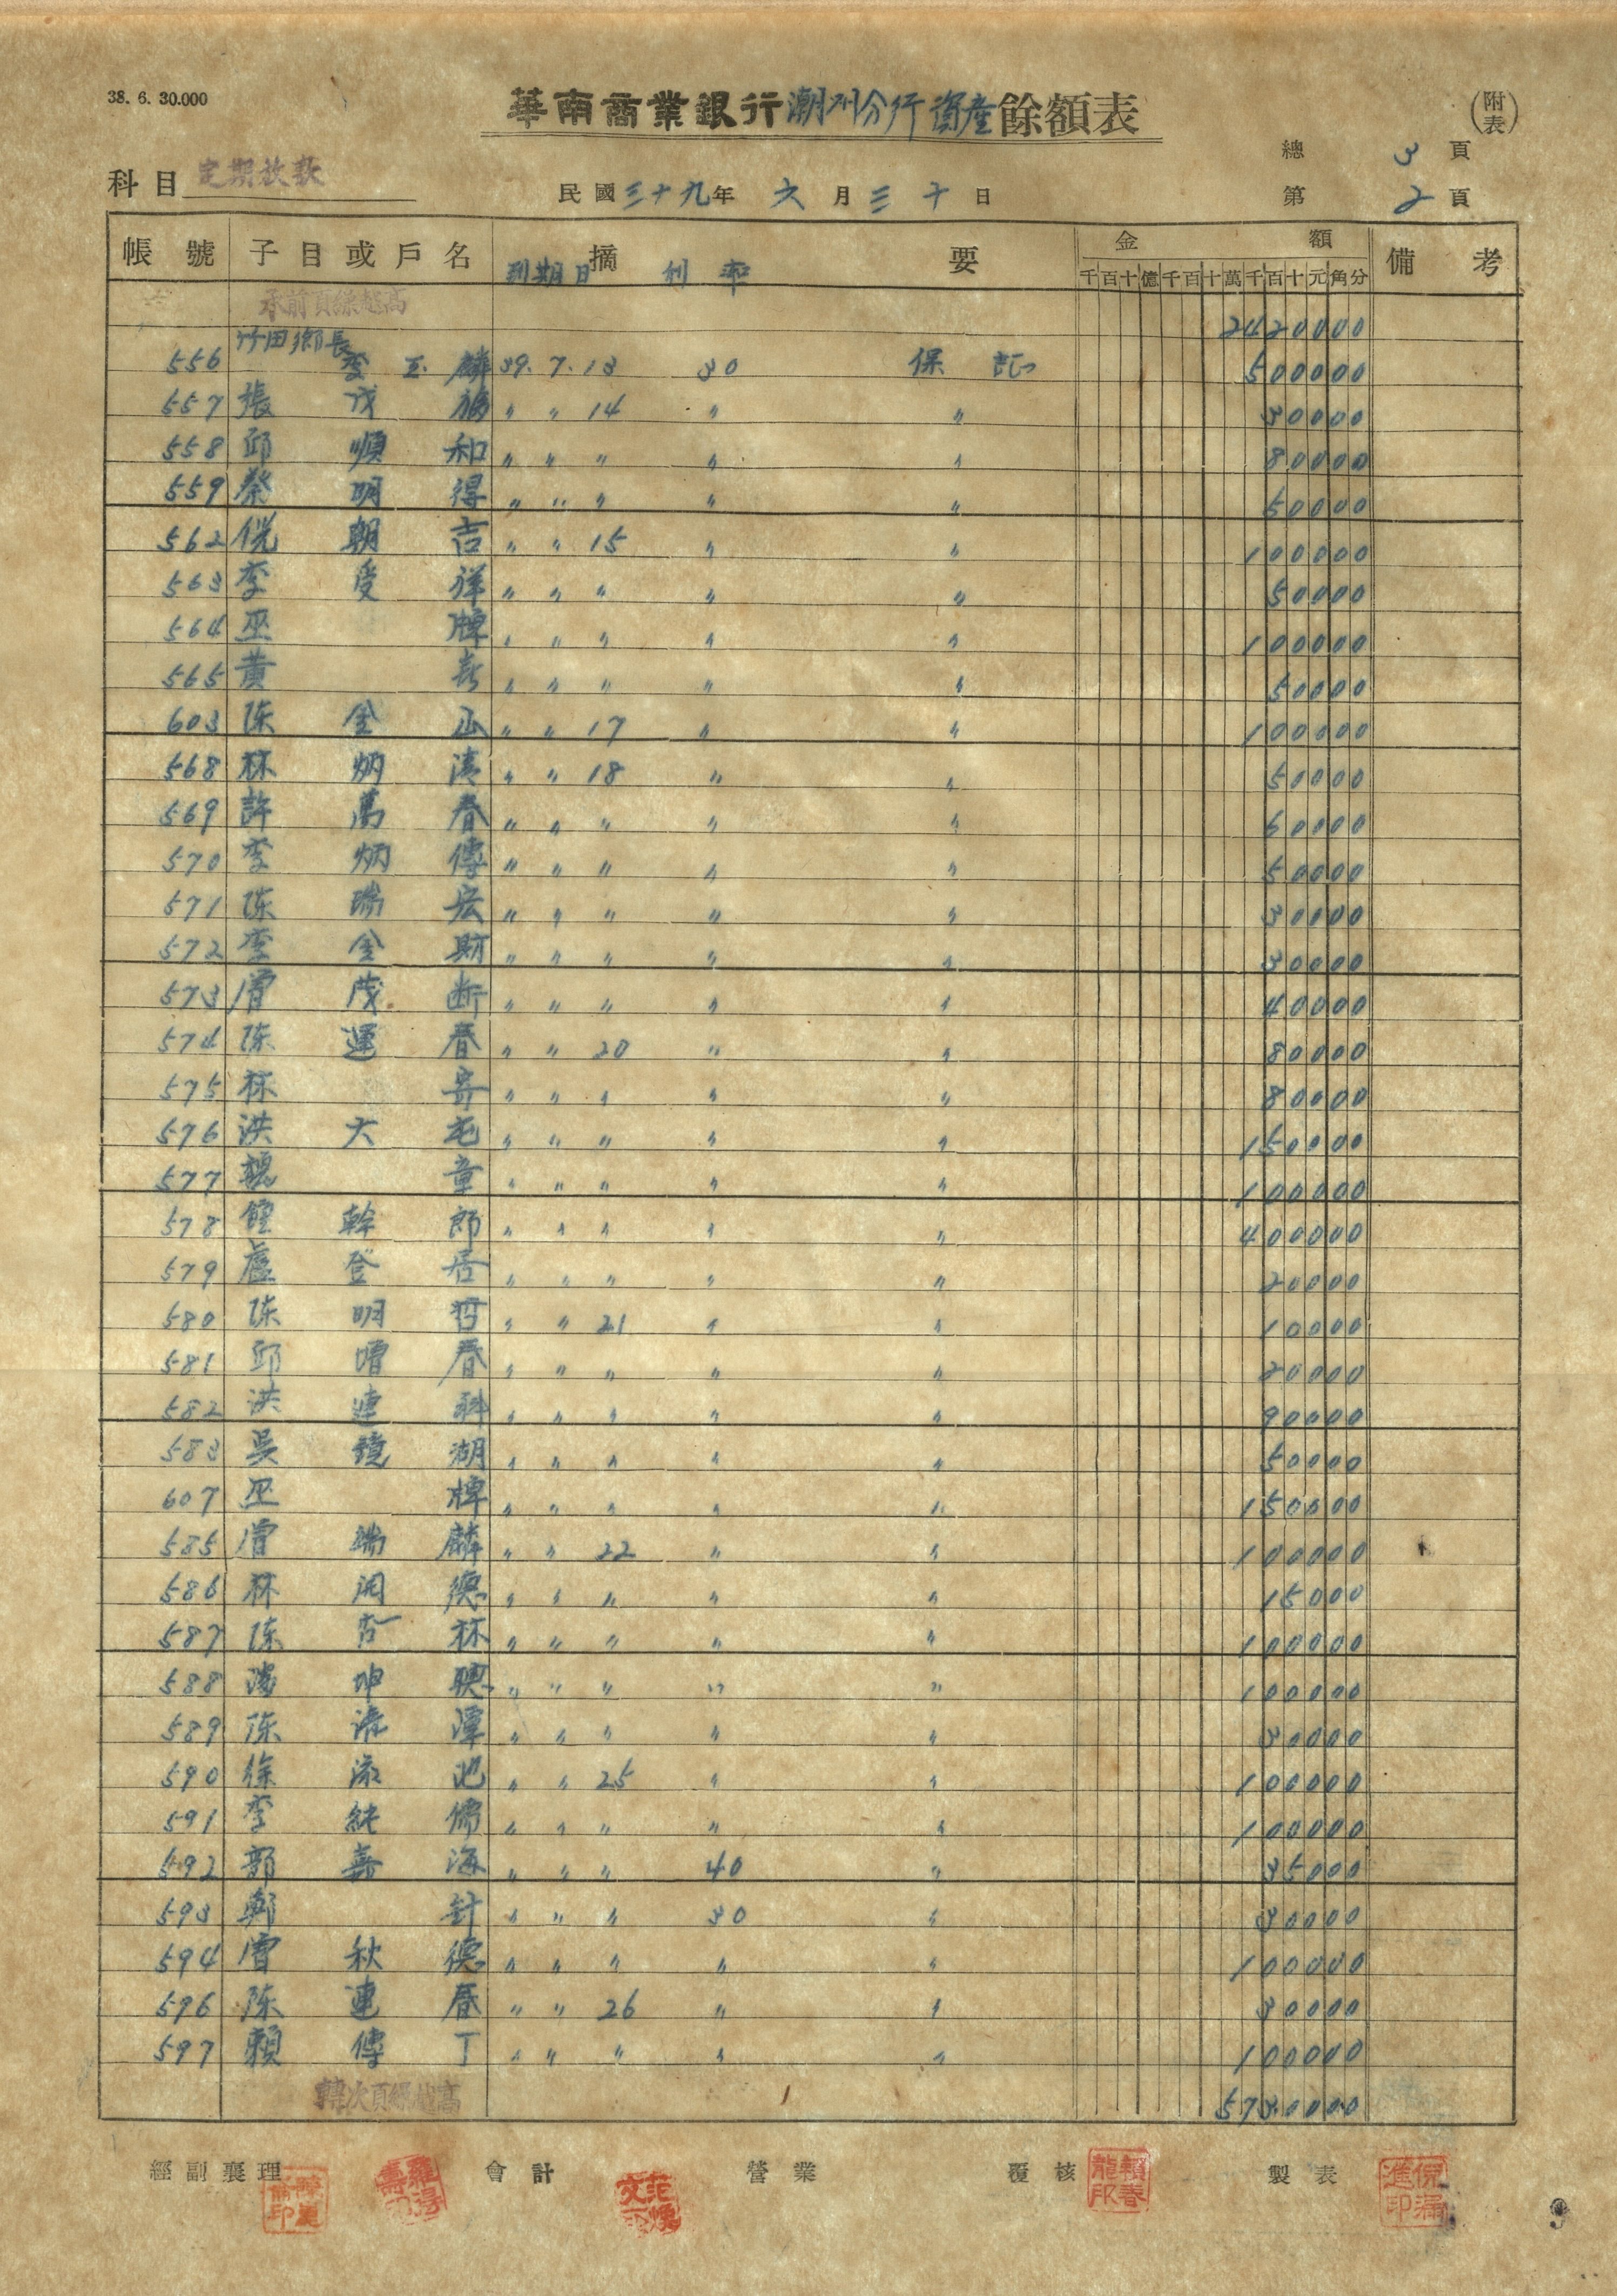 38. 6. 30.000
華南商業銀行潮州分行資產餘額表
(附表)
總 3 頁
科目 定期放款
民國三十九年 六 月 三十 日
第 2 頁
帳號 子目或戶名 摘要 金額 備考
到期日 利率
千百十億千百十萬千百十元角分
承前頁線越高 2420000
竹田鄉長
556 李玉麟 39. 7. 13 30 保記 500000
557 張茂福 〃 〃 14 〃 〃 30000
558 邱順和 〃 〃 〃 〃 〃 80000
559 蔡明得 〃 〃 〃 〃 〃 50000
562 朝吉 〃 〃 15 〃 〃 100000
563 李受祥 〃 〃 〃 〃 〃 50000
564 巫牌 〃 〃 〃 〃 〃 100000
565 黃 〃 〃 〃 〃 〃 50000
603 陳金 〃 〃 17 〃 〃 100000
568 林炳清 〃 〃 18 〃 〃 50000
569 許萬春 〃 〃 〃 〃 〃 60000
570 李炳傳 〃 〃 〃 〃 〃 50000
571 陳瑞宏 〃 〃 〃 〃 〃 30000
572 李金財 〃 〃 〃 〃 〃 30000
573 曾茂断 〃 〃 〃 〃 〃 40000
574 陳運春 〃 〃 20 〃 〃 80000
575 林 〃 〃 〃 〃 〃 80000
576 洪大 〃 〃 〃 〃 〃 150000
577 章 〃 〃 〃 〃 〃 100000
578 幹郎 〃 〃 〃 〃 〃 400000
579 盧登居 〃 〃 〃 〃 〃 20000
580 陳明哲 〃 〃 21 〃 〃 10000
581 邱增春 〃 〃 〃 〃 〃 20000
582 洪連科 〃 〃 〃 〃 〃 90000
583 吳鏡湖 〃 〃 〃 〃 〃 50000
607 巫牌 〃 〃 〃 〃 〃 150000
585 曾瑞麟 〃 〃 22 〃 〃 100000
586 林開德 〃 〃 〃 〃 〃 15000
587 陳杏林 〃 〃 〃 〃 〃 100000
588 坤聰 〃 〃 〃 〃 〃 100000
589 陳添潭 〃 〃 〃 〃 〃 30000
590 徐流 〃 〃 25 〃 〃 100000
591 李純儒 〃 〃 〃 〃 〃 100000
592 部嘉海 〃 〃 〃 40 〃 35000
593 鄭針 〃 〃 〃 30 〃 30000
594 曾秋德 〃 〃 〃 〃 〃 100000
596 陳連春 〃 〃 26 〃 〃 30000
597 賴傳丁 〃 〃 〃 〃 〃 100000
轉次頁線越高 5730000
經副襄理 會計 營業 覆核 製表
9